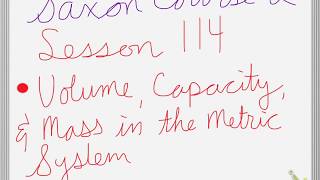 Saxon Course 2
Lesson 114
• Volume, Capacity,
& Mass in the Metric
System